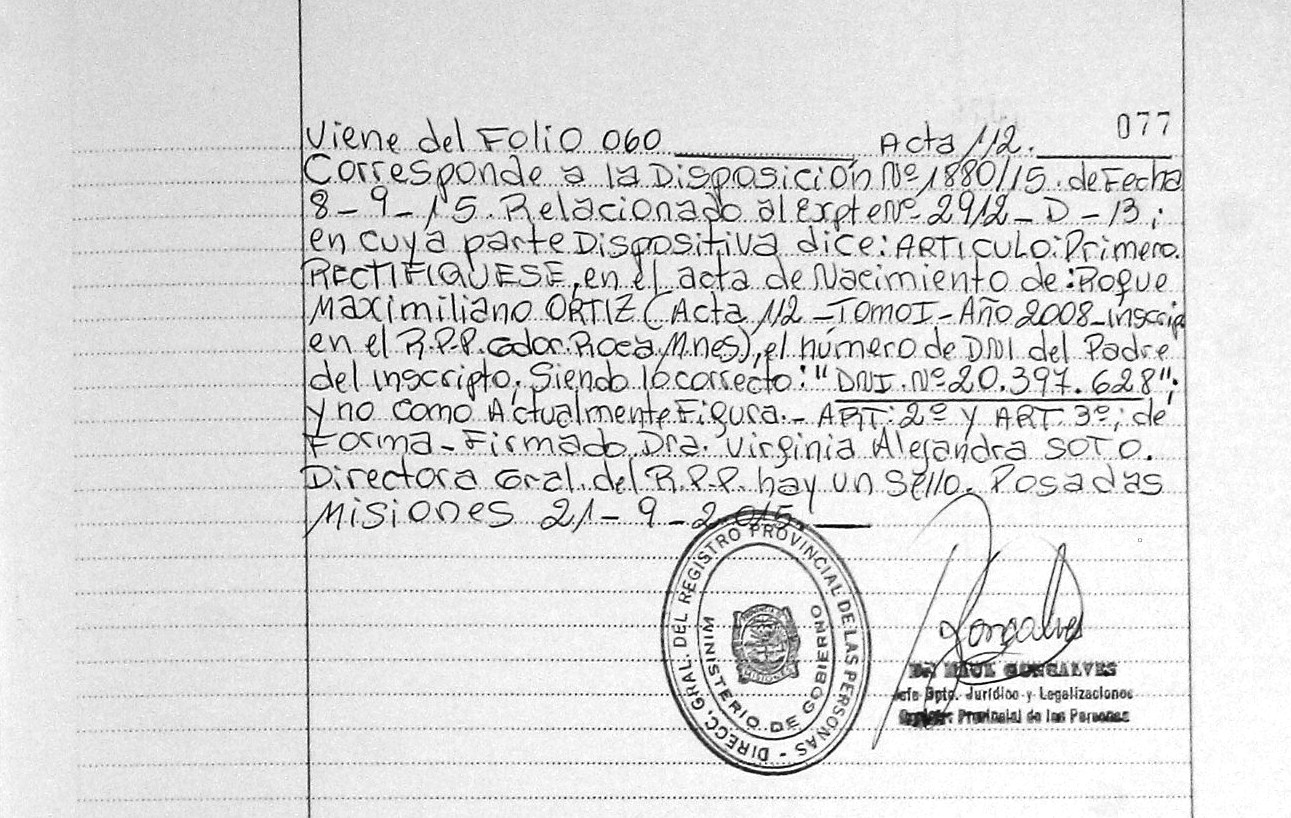 077
Viene del Folio 060 Acta 112.
Corresponde a la Disposición Nº 1880/15. de Fecha
8-9-15. Relacionado al Expte Nº 2912-D-13;
en cuya parte Dispositiva dice: ARTICULO: Primero.
RECTIFIQUESE, en el acta de Nacimiento de: Roque
Maximiliano ORTIZ (Acta 112 - TOMO I - Año 2008 - inscrip
en el R.P.P. Gdor. Roca, Mnes), el número de DNI del Padre
del inscripto; Siendo lo correcto: "DNI. Nº 20.397.628";
y no como Actualmente Figura.- ART: 2º y ART. 3º; de
Forma - Firmado Dra. Virginia Alejandra SOTO.
Directora Gral. del R.P.P. hay un Sello. Posadas
Misiones 21-9-2015.
DIRECC. GRAL. DEL REGISTRO PROVINCIAL DE LAS PERSONAS -
MINISTERIO DE GOBIERNO
Gonçalves
DR. RAUL GONSALVES
Jefe Dpto. Jurídico y Legalizaciones
Provincial de las Personas